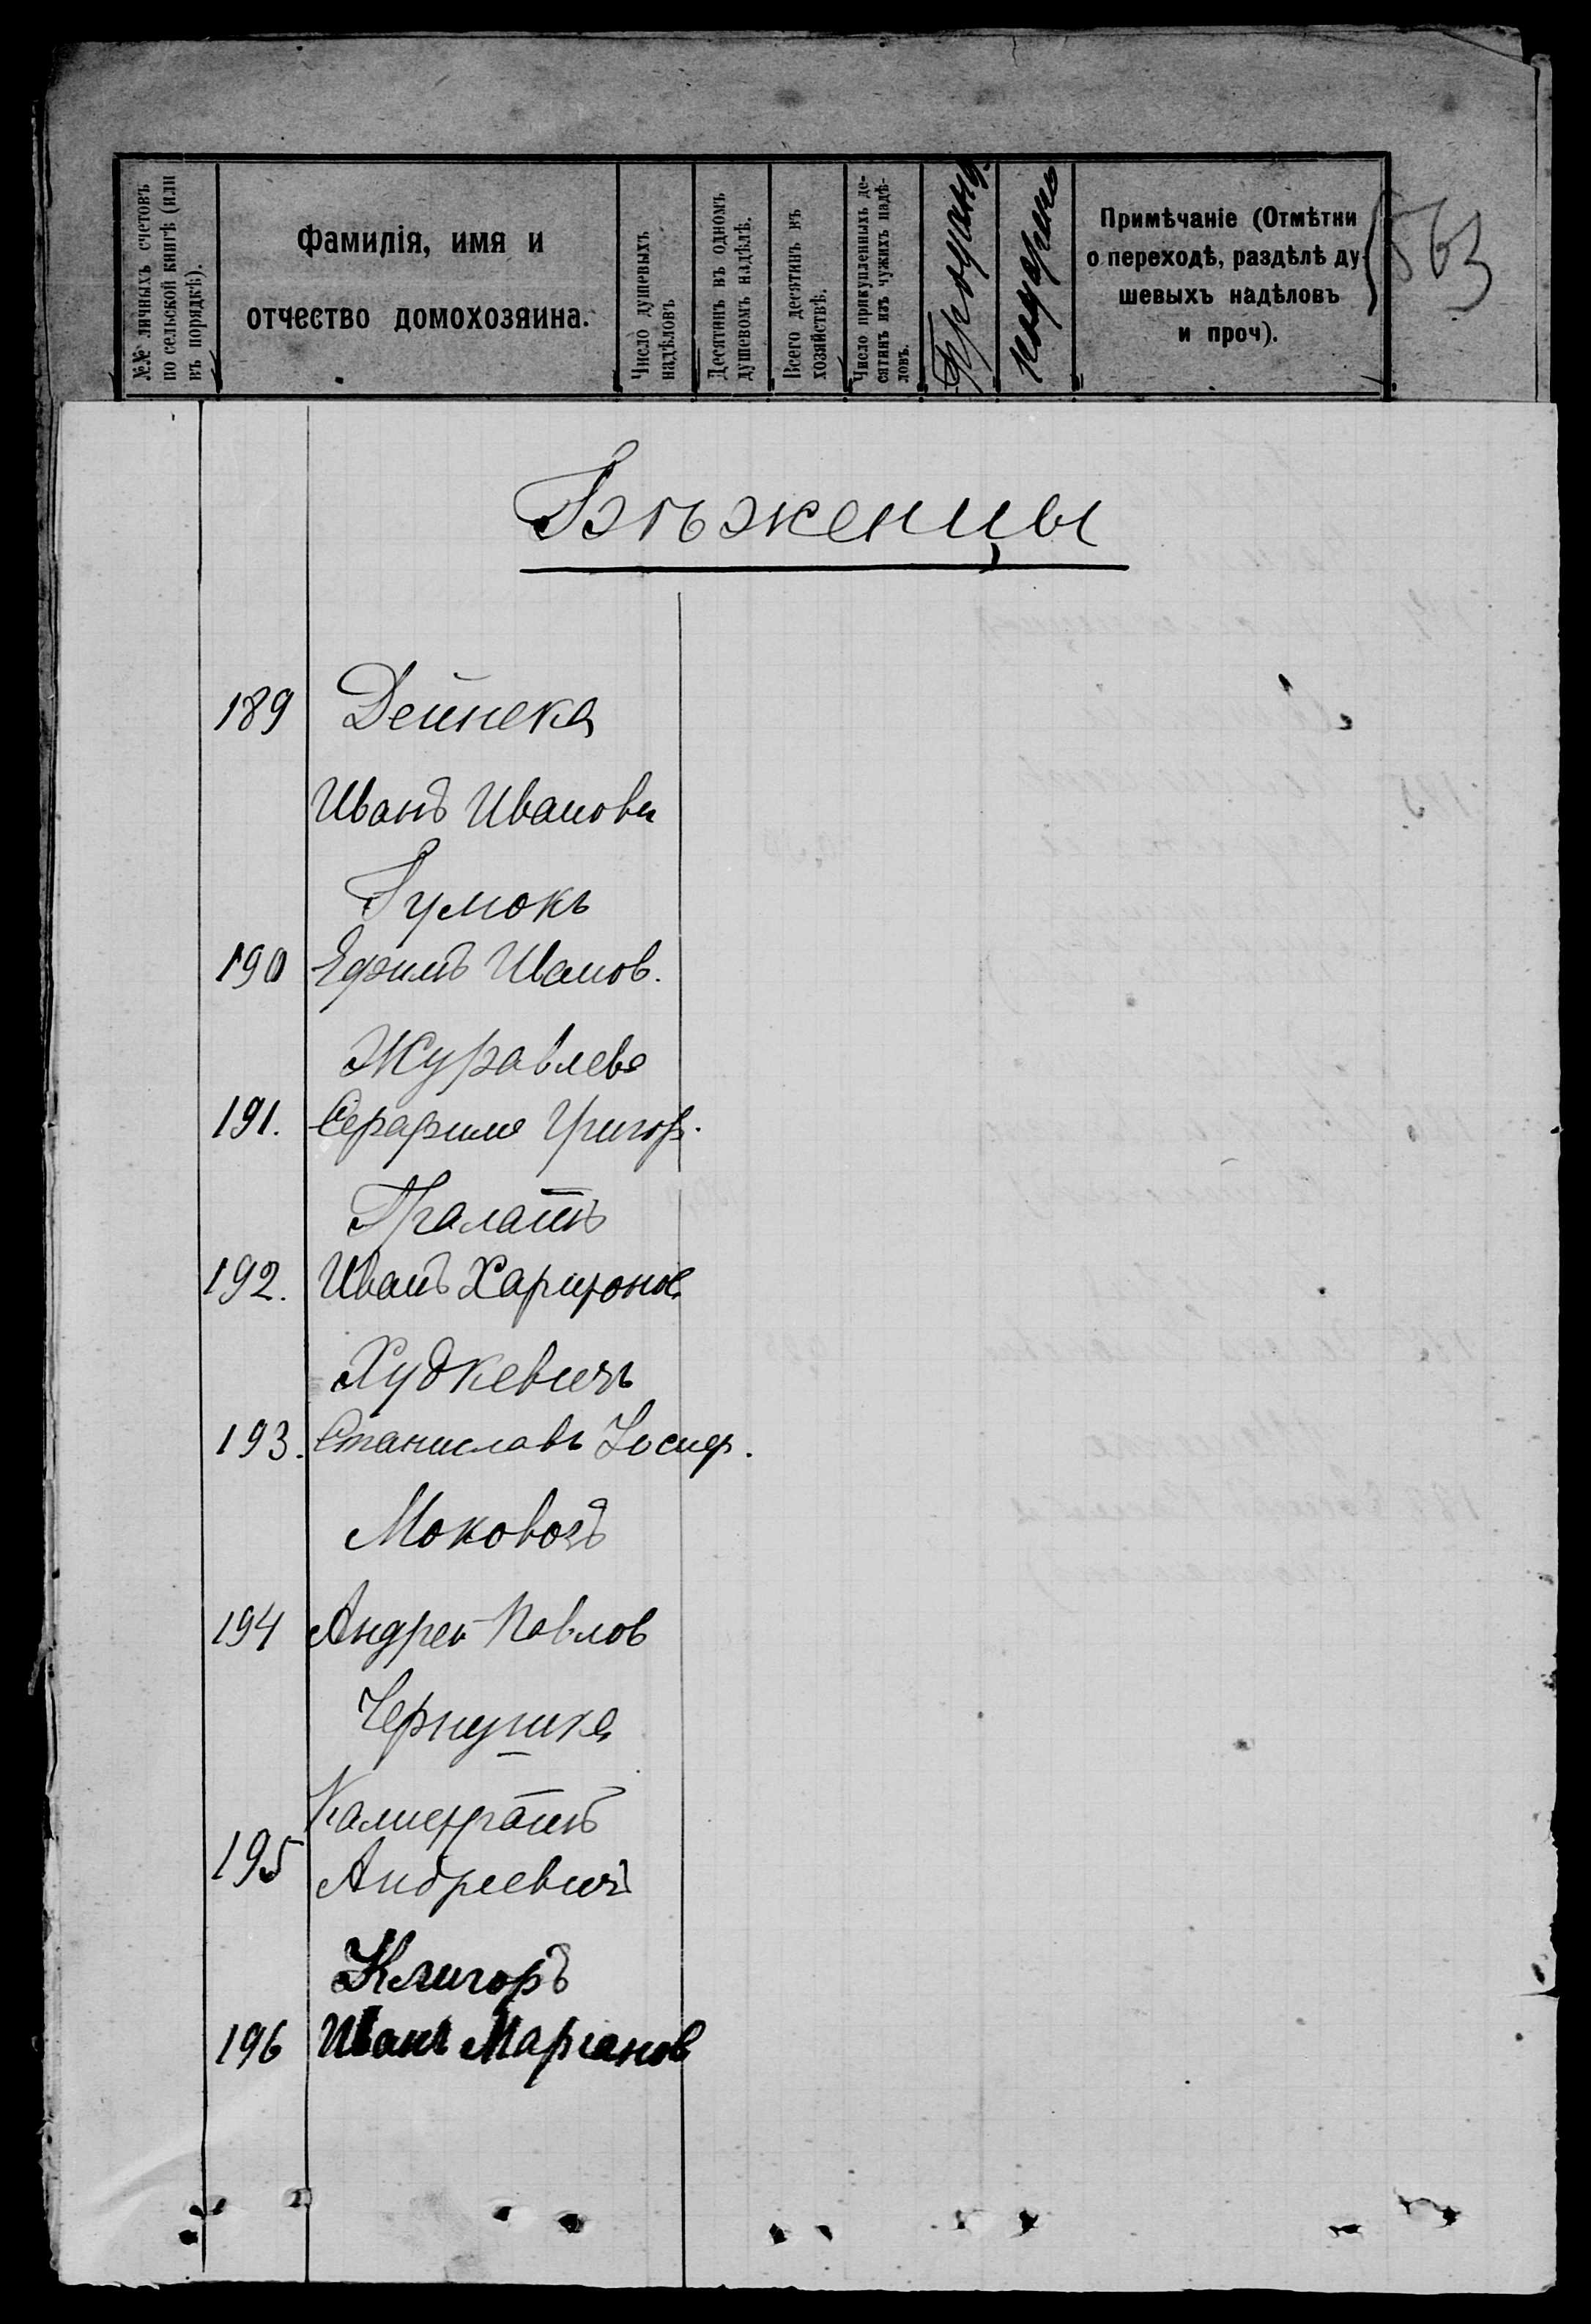 №№ личныхъ счетовъ
по сельской книгѣ (или
въ порядкѣ).
Фамилія, имя и
отчество домохозяина.
Число душевыхъ
надѣловъ
Десятинъ въ одномъ
душевомъ надѣлѣ.
Всего десятинъ въ
хозяйствѣ.
Число прикупленныхъ де-
сятинъ изъ чужихъ надѣ-
ловъ.
Примѣчаніе (Отмѣтки
о переходѣ, раздѣлѣ ду-
шевыхъ надѣловъ
и проч).
563
Бѣженцы
189 Дейнека
Иванъ Иванови
Гумокъ
190 Ефимъ Иванов.
Журавлевъ
191. Серафимъ Григор.
Пралатъ
192. Иванъ Харитонов.
Худкевичъ
193. Станиславъ Іосиф.
Моковозъ
194 Андрей Павлов
Чернушка
Калистратъ
195 Андреевичъ
Клигоръ
196 Иванъ Маріанов